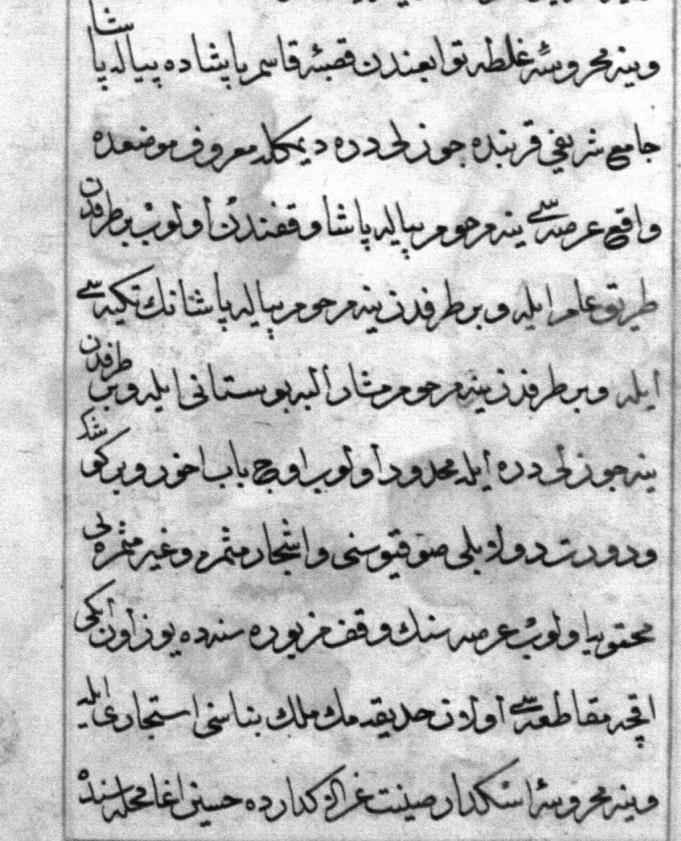 وينه محروسۀ غلطه توابعندن قصبۀ قاسم پاشاده پياله پاشا
جامع شريفى قربنده جوزلى دره ديمكله معروف موضعده
واقع عرصه سى ينه مرحوم پياله پاشا وقفندن اولوب بر طرفدن
طريق عام ايله وبر طرفدن ينه مرحوم پياله پاشانك تكيه سى
ايله وبر طرفدن ينه مرحوم مشار اليه بوستانى ايله وبر طرفدن
ينه جوزلى دره ايله محدود اولوب اوچ باب اخور وبر كوشك
ودورت دولابلى صو قيوسنى واشجار مثمره وغير مثمره يى
محتويه اولوب عرصه سنك وقف مزبوره سنده يوز اون ايكى
اقچه مقاطعه سى اولان حديقه مك ملك بناسنى استجارى ايله
وينه محروسۀ اسكدار كنارده حسين اغا محله سنده